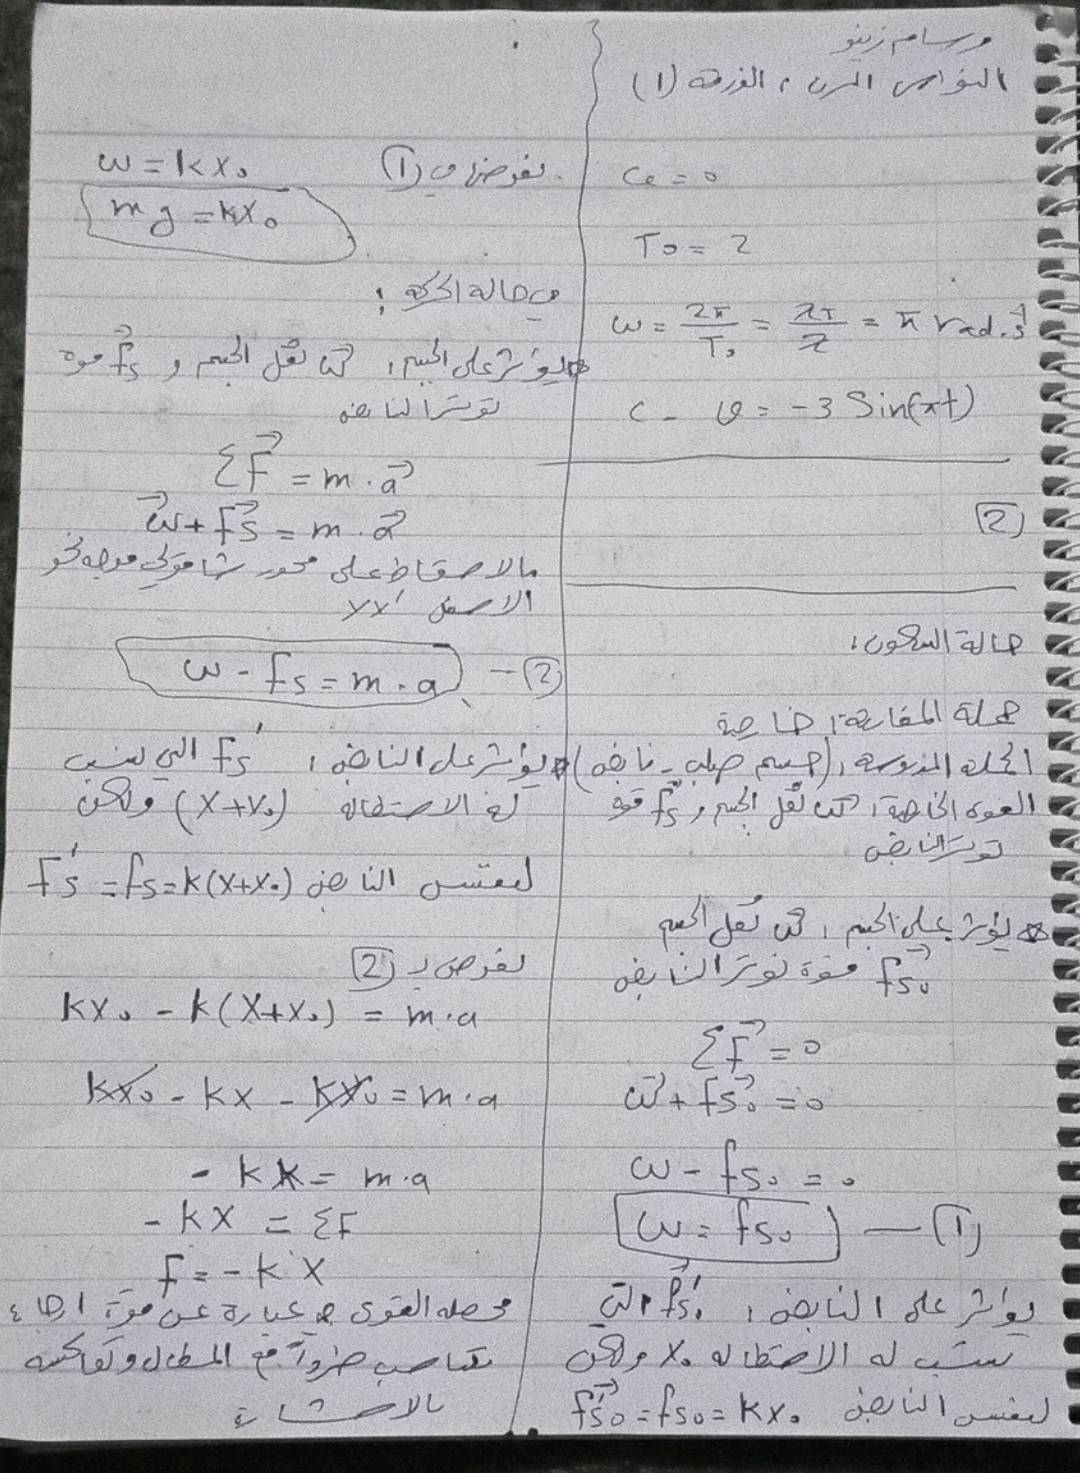 وسام زينو
النواس المرن، الورقة (1)
φ = 0
T₀ = 2
ω = 2π/T₀ = 2π/2 = π rad.s⁻¹
C - = -3 Sin(πt)
(2)
حالة السكون:
جملة المقارنة: خارجية
الجملة المدروسة: (جسم صلب - نابض)
القوى الخارجية: ثقل الجسم و fs₀ قوة
توتر النابض
يؤثر على الجسم: ثقل الجسم
fs₀ قوة توتر النابض
ΣF = 0
ω + fs₀ = 0
ω - fs₀ = 0
ω = fs₀ — (1)
يؤثر على النابض: fs₀' التي
تسبب له الاستطالة x₀ ولكن
لنفس النابض fs₀' = fs₀ = kx₀
نعوض في (1)
ω = kx₀
mg = kx₀
في حالة الحركة:
يؤثر على الجسم: ثقل الجسم و fs قوة
توتر النابض
ΣF = m.a
ω + fs = m.a
بالاسقاط على محور شاقولي موجه نحو
الاسفل xx'
ω - fs = m.a — (2)
يؤثر على النابض: fs' التي تسبب
له الاستطالة (x+x₀) ولكن
لنفس النابض fs' = fs = k(x+x₀)
نعوض بـ (2)
kx₀ - k(x+x₀) = m.a
kx₀ - kx - kx₀ = m.a
- kx = m.a
- kx = ΣF
F = - k x
محصلة القوى هي عبارة عن قوة ارجاع
تتناسب طرداً مع المطال وتعاكسه
بالاشارة